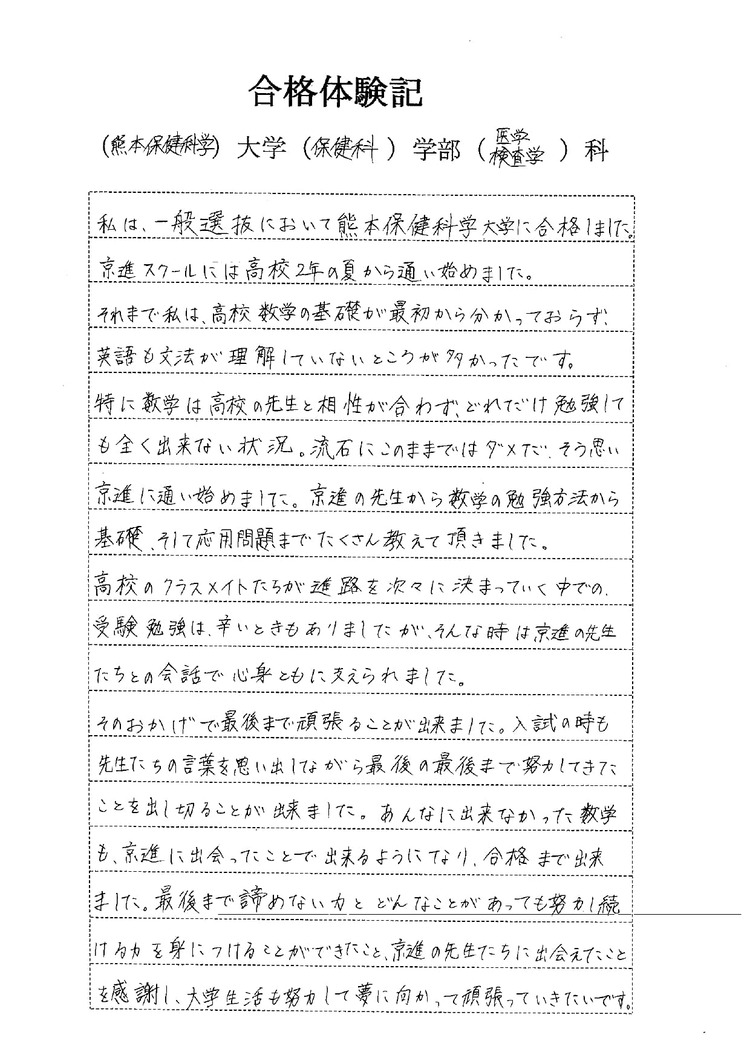 合格体験記
(熊本保健科学) 大学 (保健科) 学部 (医学検査学) 科
私は、一般選抜において熊本保健科学大学に合格しました。
京進スクールには高校2年の夏から通い始めました。
それまで私は、高校数学の基礎が最初から分かっておらず、
英語も文法が理解していないところが多かったです。
特に数学は高校の先生と相性が合わず、どれだけ勉強して
も全く出来ない状況。流石にこのままではダメだ、そう思い
京進に通い始めました。京進の先生から数学の勉強方法から
基礎、そして応用問題までたくさん教えて頂きました。
高校のクラスメイトたちが進路を次々に決まっていく中での、
受験勉強は、辛いときもありましたが、そんな時は京進の先生
たちとの会話で心身ともに支えられました。
そのおかげで最後まで頑張ることが出来ました。入試の時も
先生たちの言葉を思い出しながら最後の最後まで努力してきた
ことを出し切ることが出来ました。あんなに出来なかった数学
も、京進に出会ったことで出来るようになり、合格まで出来
ました。最後まで諦めない力とどんなことがあっても努力し続
ける力を身につけることができたこと、京進の先生たちに出会えたこと
を感謝し、大学生活も努力して夢に向かって頑張っていきたいです。